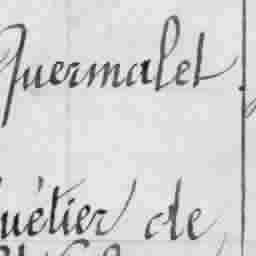 Quermalet.
uétier de